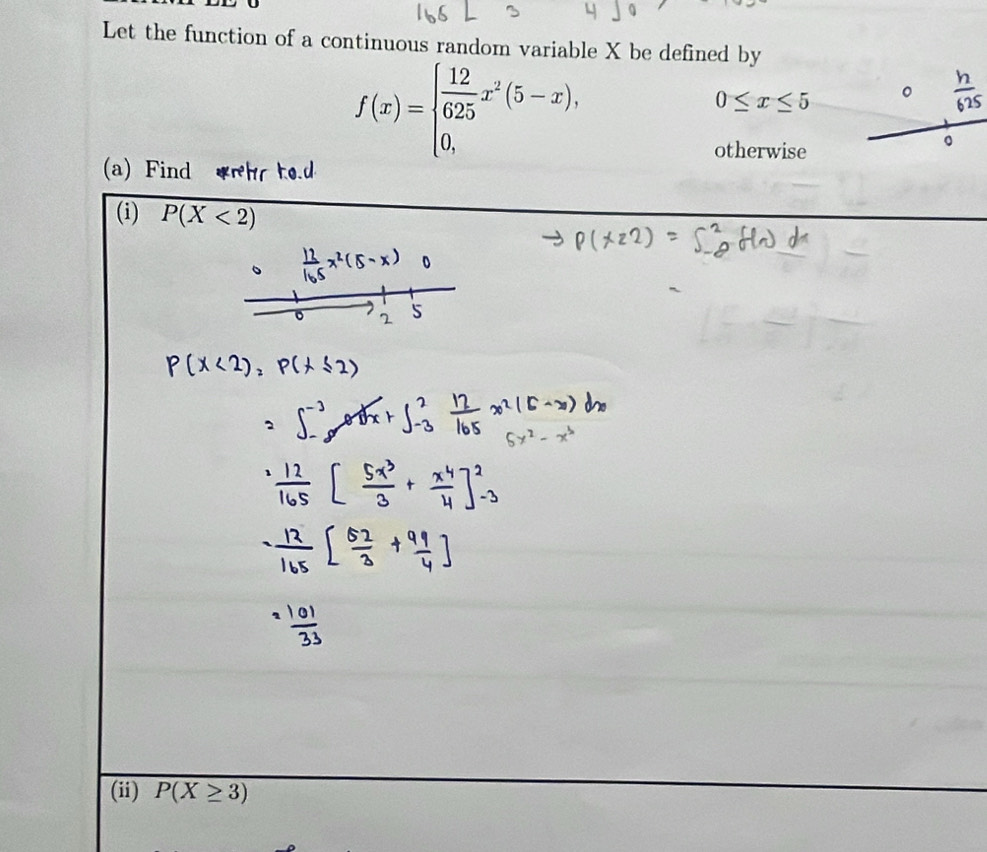 165 [ 3 4 ] 0
Let the function of a continuous random variable X be defined by
f(x) = { 12/625 x²(5 − x), 0 ≤ x ≤ 5
0, otherwise
0 12/625
0
(a) Find
(i) P(X < 2)
→ P(X≤2) = ∫_{-∞}^{2} f(x) dx
=
0 12/165 x²(5-x) 0
0 2 5
P(X<2) = P(X≤2)
= ∫_{-∞}^{-3} 0 dx + ∫_{-3}^{2} 12/165 x²(5-x) dx
5x² - x³
= 12/165 [ 5x³/3 + x⁴/4 ]_{-3}^{2}
= 12/165 [ 52/3 + 99/4 ]
= 101/33
(ii) P(X ≥ 3)